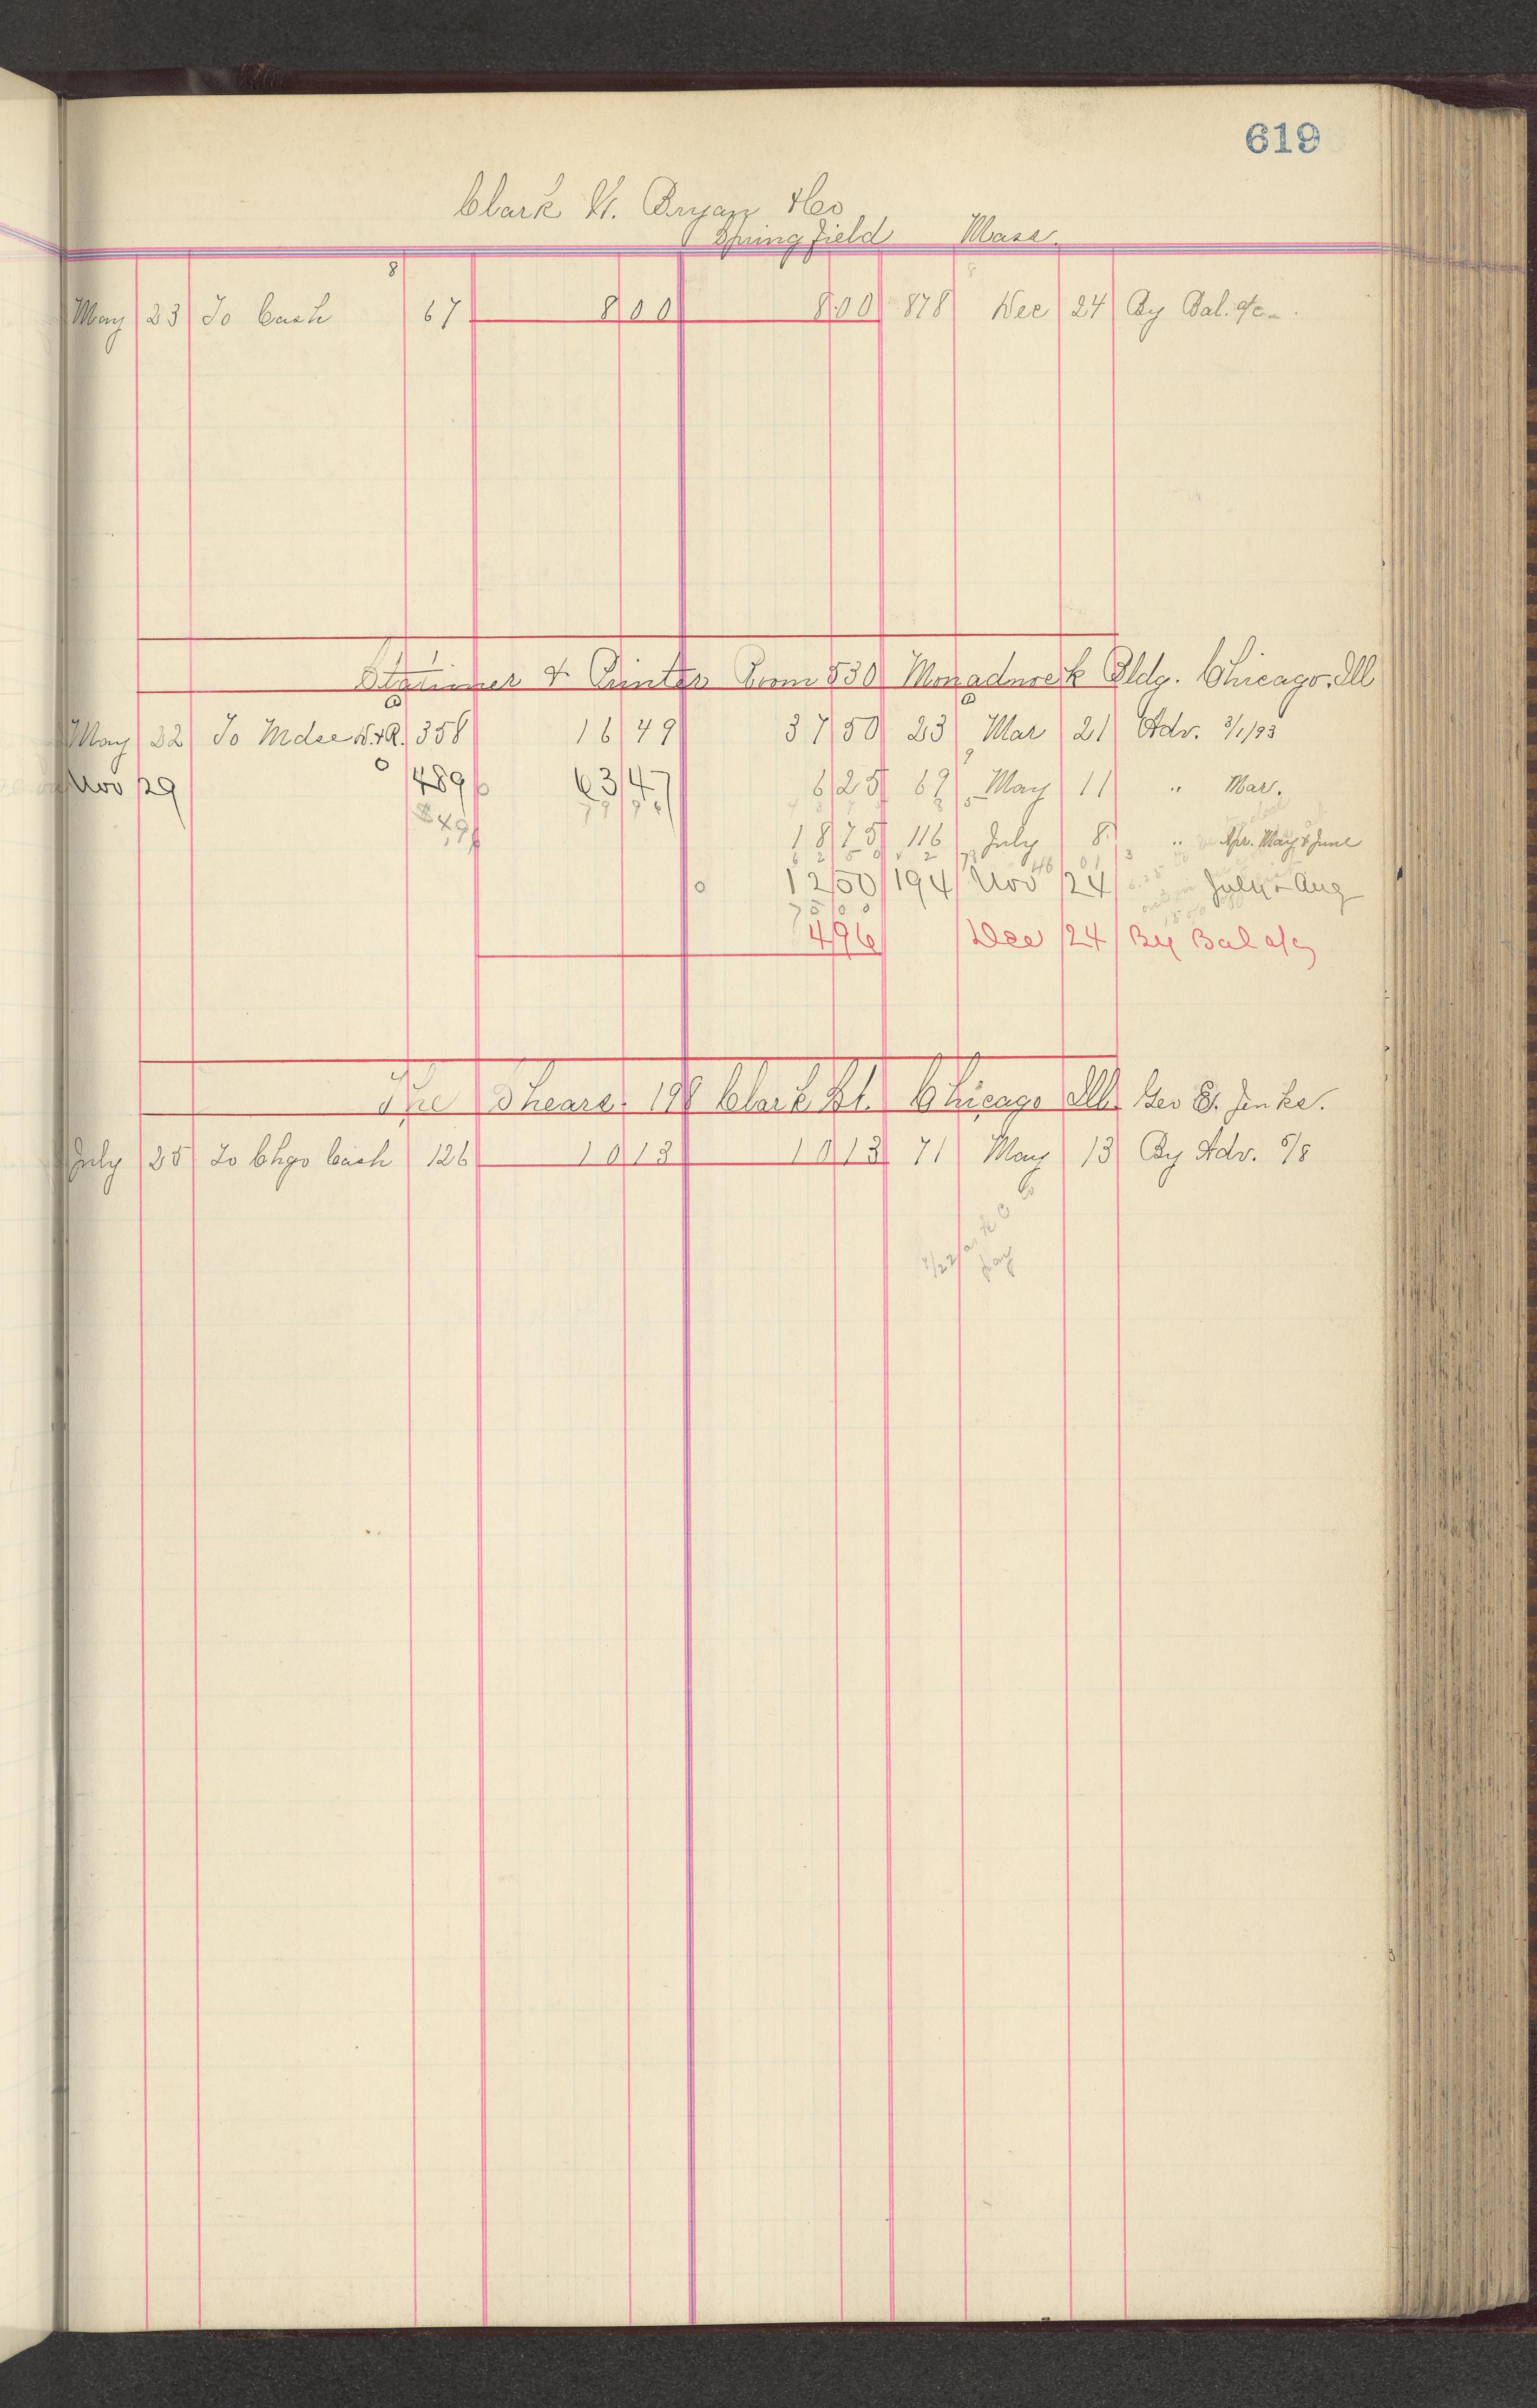 619
Clark W. Bryan & Co
Springfield Mass.
8
May 23 To Cash 67 8 00 8 00 878 Dec 24 By Bal. a/c
Stationer & Printer Room 530 Monadnock Bldg. Chicago, Ill
May 22 To Mdse N.&R. 358 16 49 37 50 23 Mar 21 Adv. 3/1/93
Nov 29 489 63 47 6 25 69 May 11 " Mar.
79 96
18 75 116 July 8 " Apr. May & June
62 50
12 50 194 Nov 24 July & Aug
75 00
4 96 Dec 24 By Bal a/c
The Shears. 198 Clark St. Chicago Ill. Geo E. Jenks.
July 25 To Chgo Cash 126 10 13 10 13 71 May 13 By Adv. 5/8